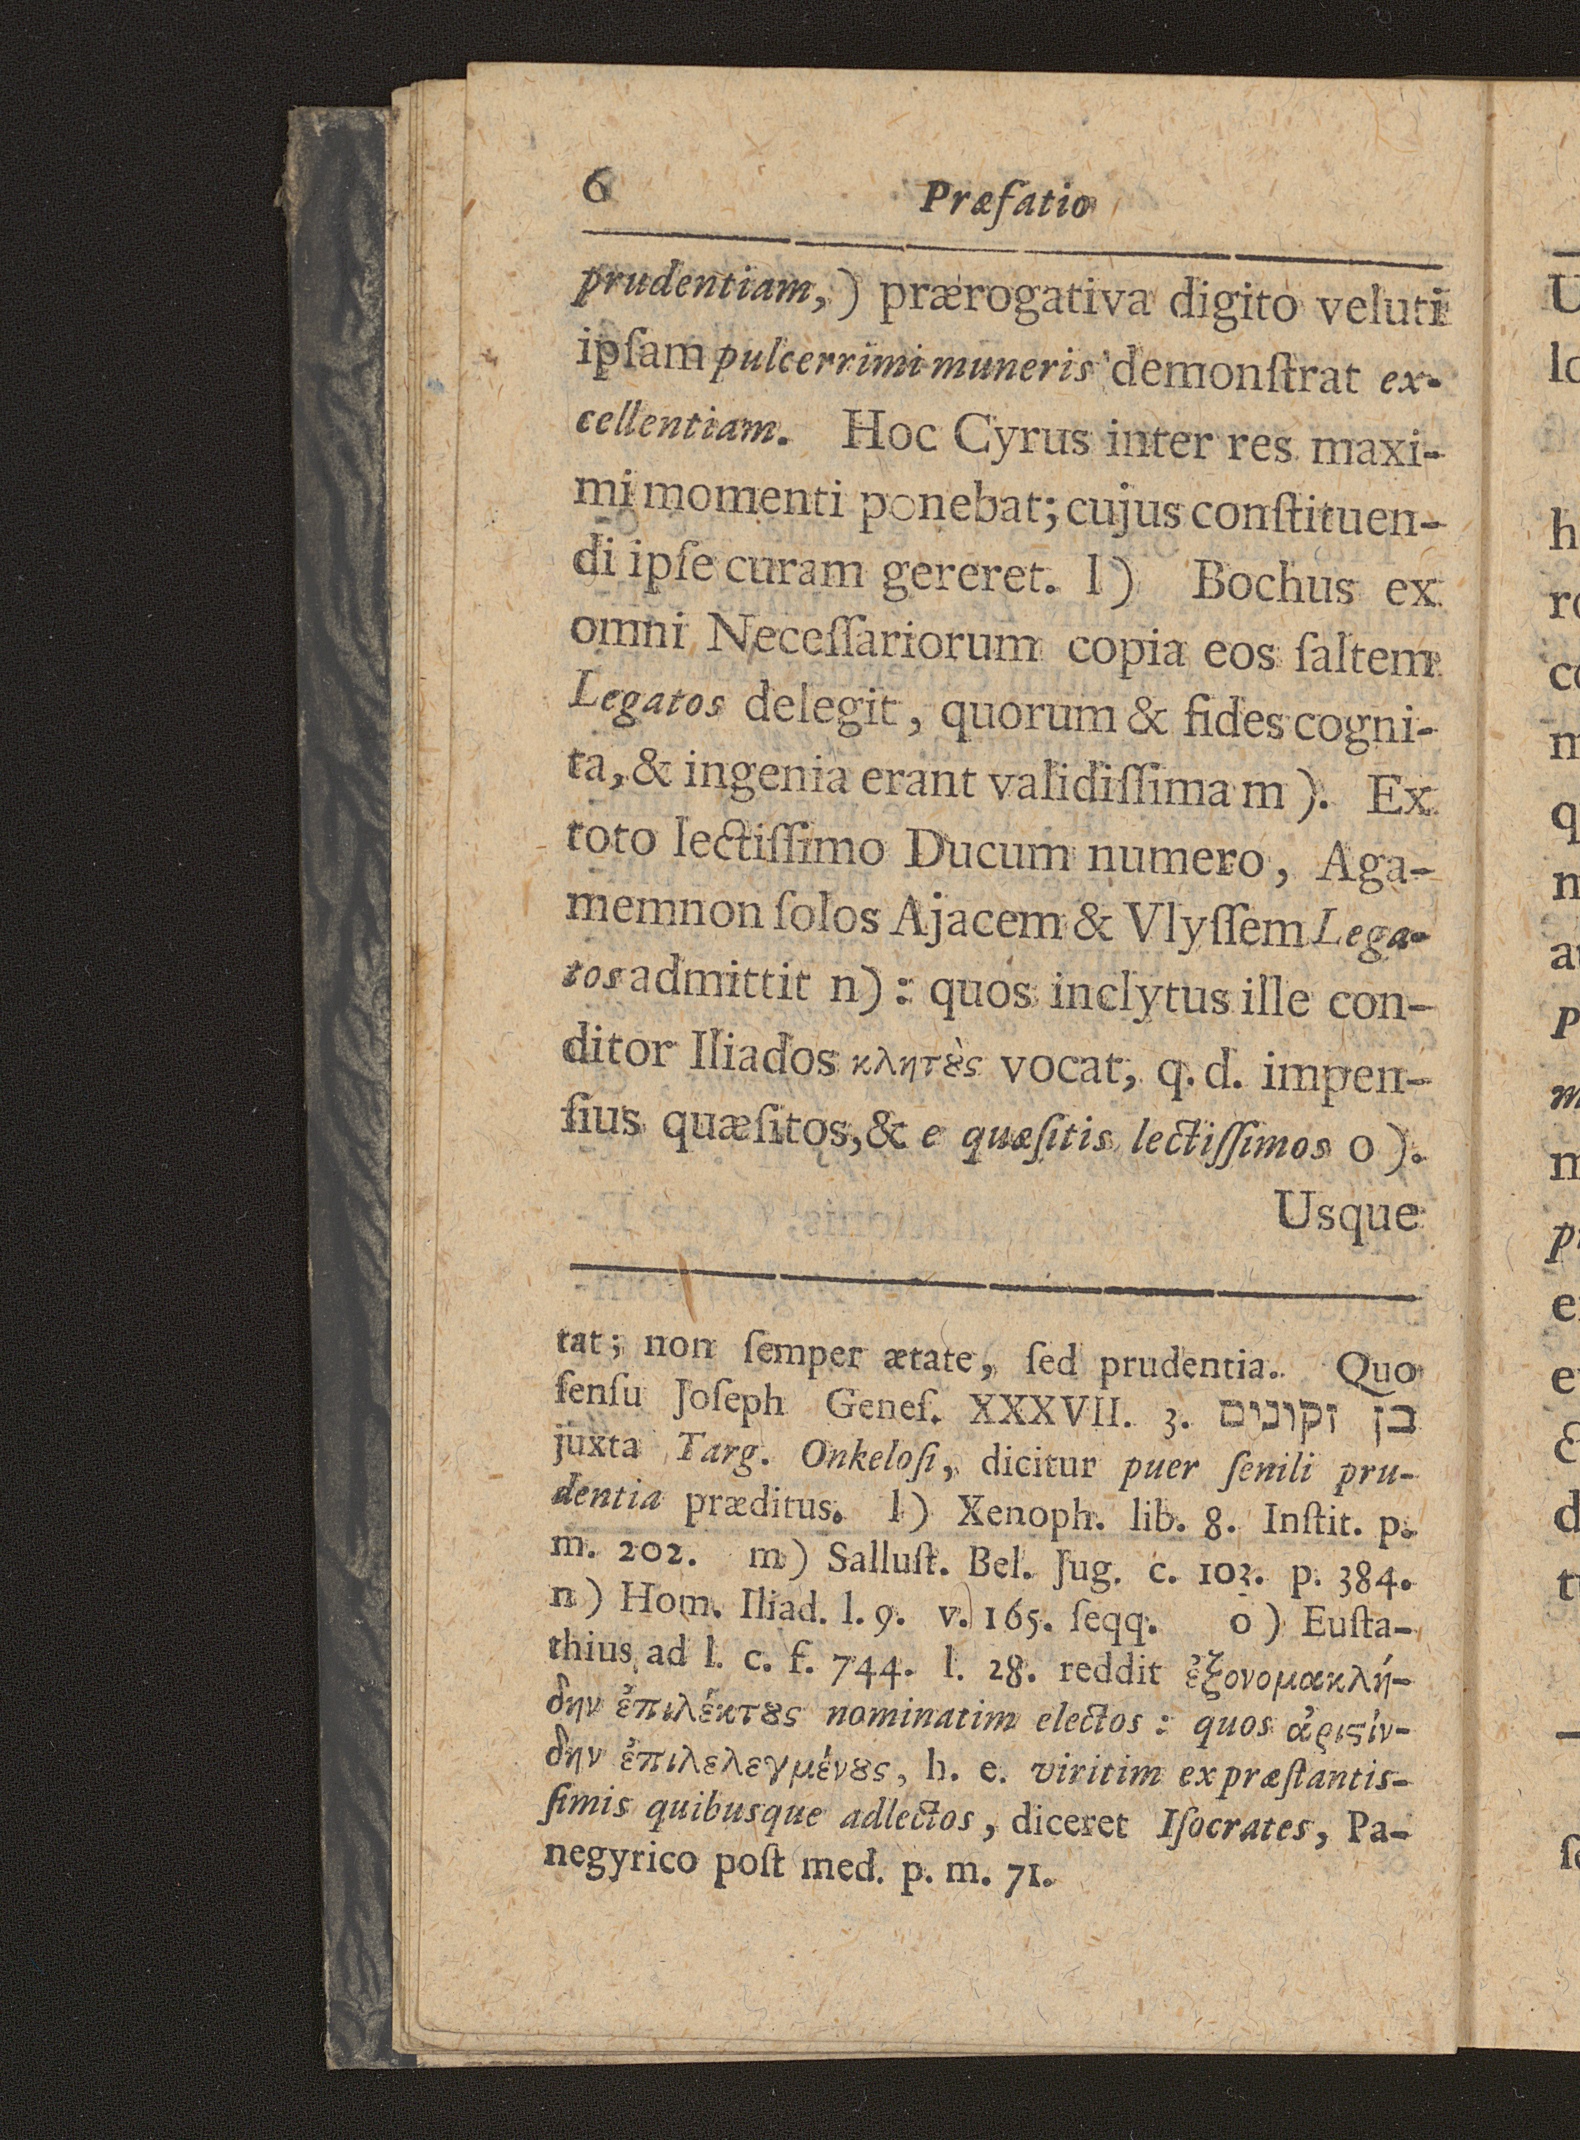 6 Præfatio
prudentiam,) prærogativa digito veluti
ipſam pulcerrimi muneris demonſtrat ex-
cellentiam. Hoc Cyrus inter res maxi-
mi momenti ponebat; cujus conſtituen-
di ipſe curam gereret. l) Bochus ex
omni Neceſſariorum copia eos ſaltem
Legatos delegit, quorum & fides cogni-
ta, & ingenia erant validiſſima m). Ex
toto lectiſſimo Ducum numero, Aga-
memnon ſolos Ajacem & Vlyſſem Lega-
tos admittit n): quos inclytus ille con-
ditor Iliados κλητȣ̀ς vocat, q. d. impen-
ſius quæſitos, & e quæſitis lectiſſimos o).
Usque
tat; non ſemper ætate, ſed prudentia. Quo
ſenſu Joſeph Geneſ. XXXVII. 3. בן זקונים
juxta Targ. Onkeloſi, dicitur puer ſenili pru-
dentia præditus. l) Xenoph. lib. 8. Inſtit. p.
m. 202. m) Salluſt. Bel. Jug. c. 103. p. 384.
n) Hom. Iliad. l. 9. v. 165. ſeqq. o) Euſta-
thius ad l. c. f. 744. l. 28. reddit ἐξονομακλή-
δην ἐπιλέκτȣς nominatim electos: quos ἀριϛίν-
δην ἐπιλελεγμένȣς, h. e. viritim ex præſtantis-
ſimis quibusque adlectos, diceret Iſocrates, Pa-
negyrico poſt med. p. m. 71.